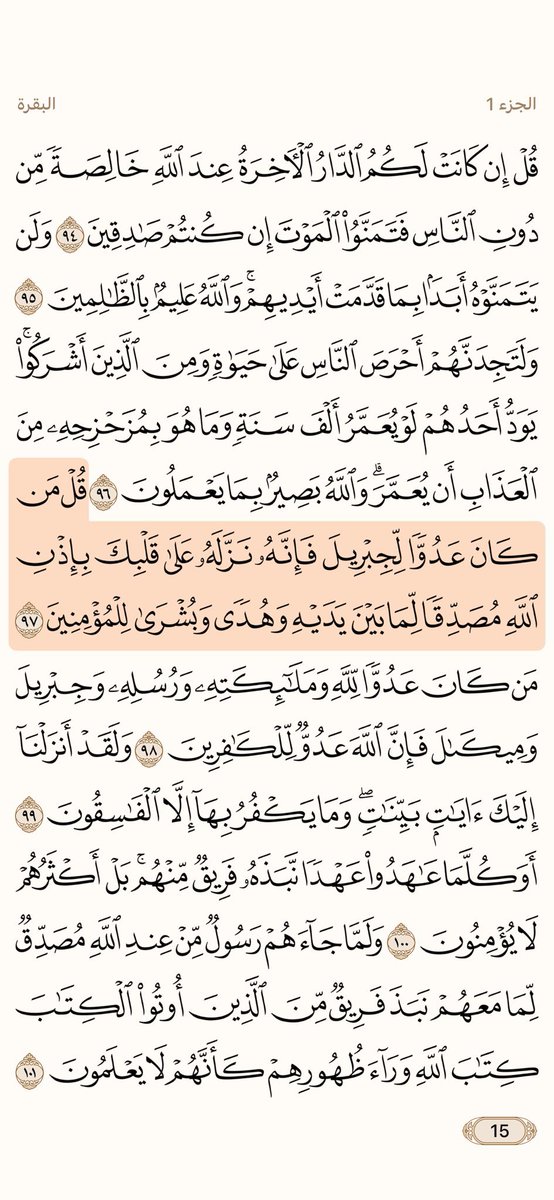 الجزء 1
البقرة
قُلۡ إِن كَانَتۡ لَكُمُ ٱلدَّارُ ٱلۡأٓخِرَةُ عِندَ ٱللَّهِ خَالِصَةٗ مِّن
دُونِ ٱلنَّاسِ فَتَمَنَّوُاْ ٱلۡمَوۡتَ إِن كُنتُمۡ صَٰدِقِينَ ٩٤ وَلَن
يَتَمَنَّوۡهُ أَبَدَۢا بِمَا قَدَّمَتۡ أَيۡدِيهِمۡۚ وَٱللَّهُ عَلِيمُۢ بِٱلظَّٰلِمِينَ ٩٥
وَلَتَجِدَنَّهُمۡ أَحۡرَصَ ٱلنَّاسِ عَلَىٰ حَيَوٰةٖ وَمِنَ ٱلَّذِينَ أَشۡرَكُواْۚ
يَوَدُّ أَحَدُهُمۡ لَوۡ يُعَمَّرُ أَلۡفَ سَنَةٖ وَمَا هُوَ بِمُزَحۡزِحِهِۦ مِنَ
ٱلۡعَذَابِ أَن يُعَمَّرَۗ وَٱللَّهُ بَصِيرُۢ بِمَا يَعۡمَلُونَ ٩٦ قُلۡ مَن
كَانَ عَدُوّٗا لِّجِبۡرِيلَ فَإِنَّهُۥ نَزَّلَهُۥ عَلَىٰ قَلۡبِكَ بِإِذۡنِ
ٱللَّهِ مُصَدِّقٗا لِّمَا بَيۡنَ يَدَيۡهِ وَهُدٗى وَبُشۡرَىٰ لِلۡمُؤۡمِنِينَ ٩٧
مَن كَانَ عَدُوّٗا لِّلَّهِ وَمَلَٰٓئِكَتِهِۦ وَرُسُلِهِۦ وَجِبۡرِيلَ
وَمِيكَىٰلَ فَإِنَّ ٱللَّهَ عَدُوّٞ لِّلۡكَٰفِرِينَ ٩٨ وَلَقَدۡ أَنزَلۡنَآ
إِلَيۡكَ ءَايَٰتِۭ بَيِّنَٰتٖۖ وَمَا يَكۡفُرُ بِهَآ إِلَّا ٱلۡفَٰسِقُونَ ٩٩
أَوَكُلَّمَا عَٰهَدُواْ عَهۡدٗا نَّبَذَهُۥ فَرِيقٞ مِّنۡهُمۚ بَلۡ أَكۡثَرُهُمۡ
لَا يُؤۡمِنُونَ ١٠٠ وَلَمَّا جَآءَهُمۡ رَسُولٞ مِّنۡ عِندِ ٱللَّهِ مُصَدِّقٞ
لِّمَا مَعَهُمۡ نَبَذَ فَرِيقٞ مِّنَ ٱلَّذِينَ أُوتُواْ ٱلۡكِتَٰبَ
كِتَٰبَ ٱللَّهِ وَرَآءَ ظُهُورِهِمۡ كَأَنَّهُمۡ لَا يَعۡلَمُونَ ١٠١
15